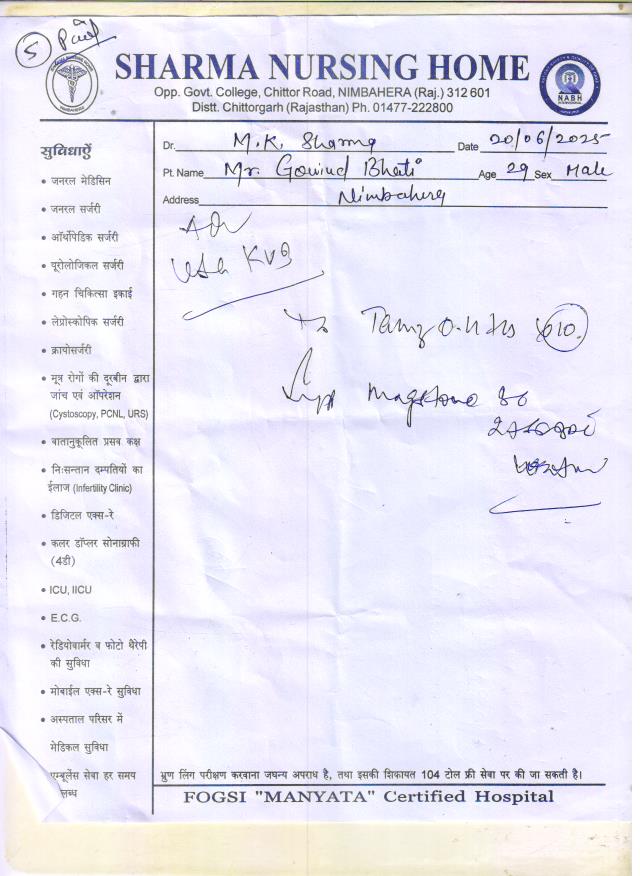 5 Paid
SHARMA NURSING HOME
Opp. Govt. College, Chittor Road, NIMBAHERA (Raj.) 312 601
Distt. Chittorgarh (Rajasthan) Ph. 01477-222800
NABH
NIMBAHERA
Dr. M.K. Sharma Date 20/06/2025
Pt. Name Mr. Govind Bhati Age 29 Sex Male
Address Nimbahera
Adv
USG KUB
सुविधाऐं
• जनरल मेडिसिन
• जनरल सर्जरी
• ऑर्थोपेडिक सर्जरी
• यूरोलोजिकल सर्जरी
• गहन चिकित्सा इकाई
• लेप्रोस्कोपिक सर्जरी
• क्रायोसर्जरी
• मूत्र रोगों की दूरबीन द्वारा
जांच एवं ऑपरेशन
(Cystoscopy, PCNL, URS)
• वातानुकूलित प्रसव कक्ष
• निःसन्तान दम्पतियों का
ईलाज (Infertility Clinic)
• डिजिटल एक्स-रे
• कलर डॉप्लर सोनोग्राफी
(4डी)
• ICU, IICU
• E.C.G.
• रेडियोवार्मर व फोटो थैरेपी
की सुविधा
• मोबाईल एक्स-रे सुविधा
• अस्पताल परिसर में
मेडिकल सुविधा
एम्बूलेंस सेवा हर समय
लब्ध
10
भ्रुण लिंग परीक्षण करवाना जघन्य अपराध है, तथा इसकी शिकायत 104 टोल फ्री सेवा पर की जा सकती है।
FOGSI "MANYATA" Certified Hospital